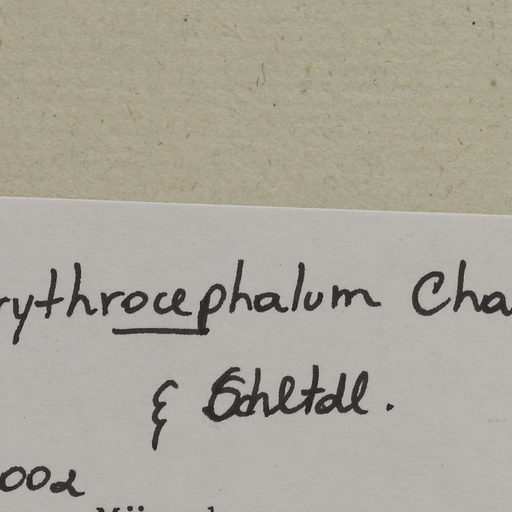 rythrocephalum Cha
& Schltdl.
002